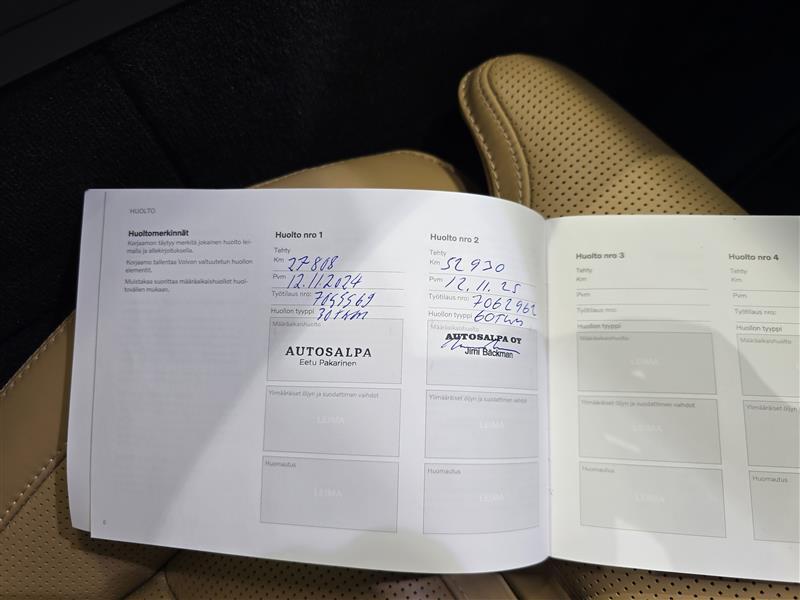 HUOLTO
Huoltomerkinnät
Korjaamon täytyy merkitä jokainen huolto lei-
malla ja allekirjoituksella.
Korjaamo tallentaa Volvon valtuutetun huollon
elementit.
Muistakaa suorittaa määräaikaishuollot huol-
tovälien mukaan.
6
Huolto nro 1
Tehty
Km 27808
Pvm 12.11.2024
Työtilaus nro: 7055569
Huollon tyyppi 30Tkm
Määräaikaishuolto
AUTOSALPA
Eetu Pakarinen
Ylimääräiset öljyn ja suodattimen vaihdot
LEIMA
Huomautus
LEIMA
Huolto nro 2
Tehty
Km 52930
Pvm 12.11.25
Työtilaus nro: 7062962
Huollon tyyppi 60Tkm
Määräaikaishuolto
AUTOSALPA OY
Jimi Bäckman
Ylimääräiset öljyn ja suodattimen vaihdot
LEIMA
Huomautus
LEIMA
Huolto nro 3
Tehty
Km
Pvm
Työtilaus nro:
Huollon tyyppi
Määräaikaishuolto
LEIMA
Ylimääräiset öljyn ja suodattimen vaihdot
LEIMA
Huomautus
LEIMA
Huolto nro 4
Tehty
Km
Pvm
Työtilaus nro:
Huollon tyyppi
Määräaikaishuolto
Ylimääräiset
Huomautus